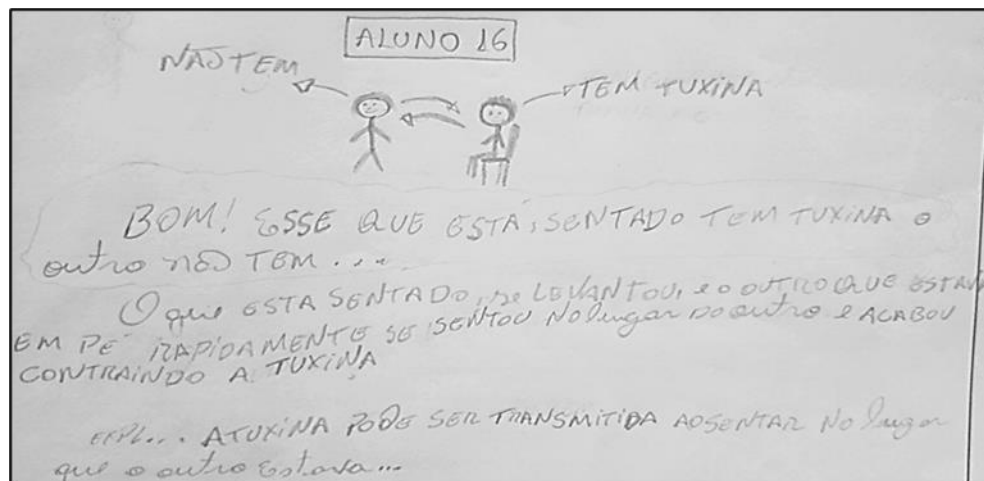 ALUNO 16
NÃO TEM
TEM TUXINA
BOM! ESSE QUE ESTÁ, SENTADO TEM TUXINA O
outro não TEM...
O que ESTA SENTADO, se LEVANTOU, e o OUTRO QUE ESTAVA
EM PÉ RAPIDAMENTE SE SENTOU NO lugar DO outro E ACABOU
CONTRAINDO A TUXINA
EXPL... A TUXINA PODE SER TRANSMITIDA AO SENTAR NO lugar
que o outro Estava...